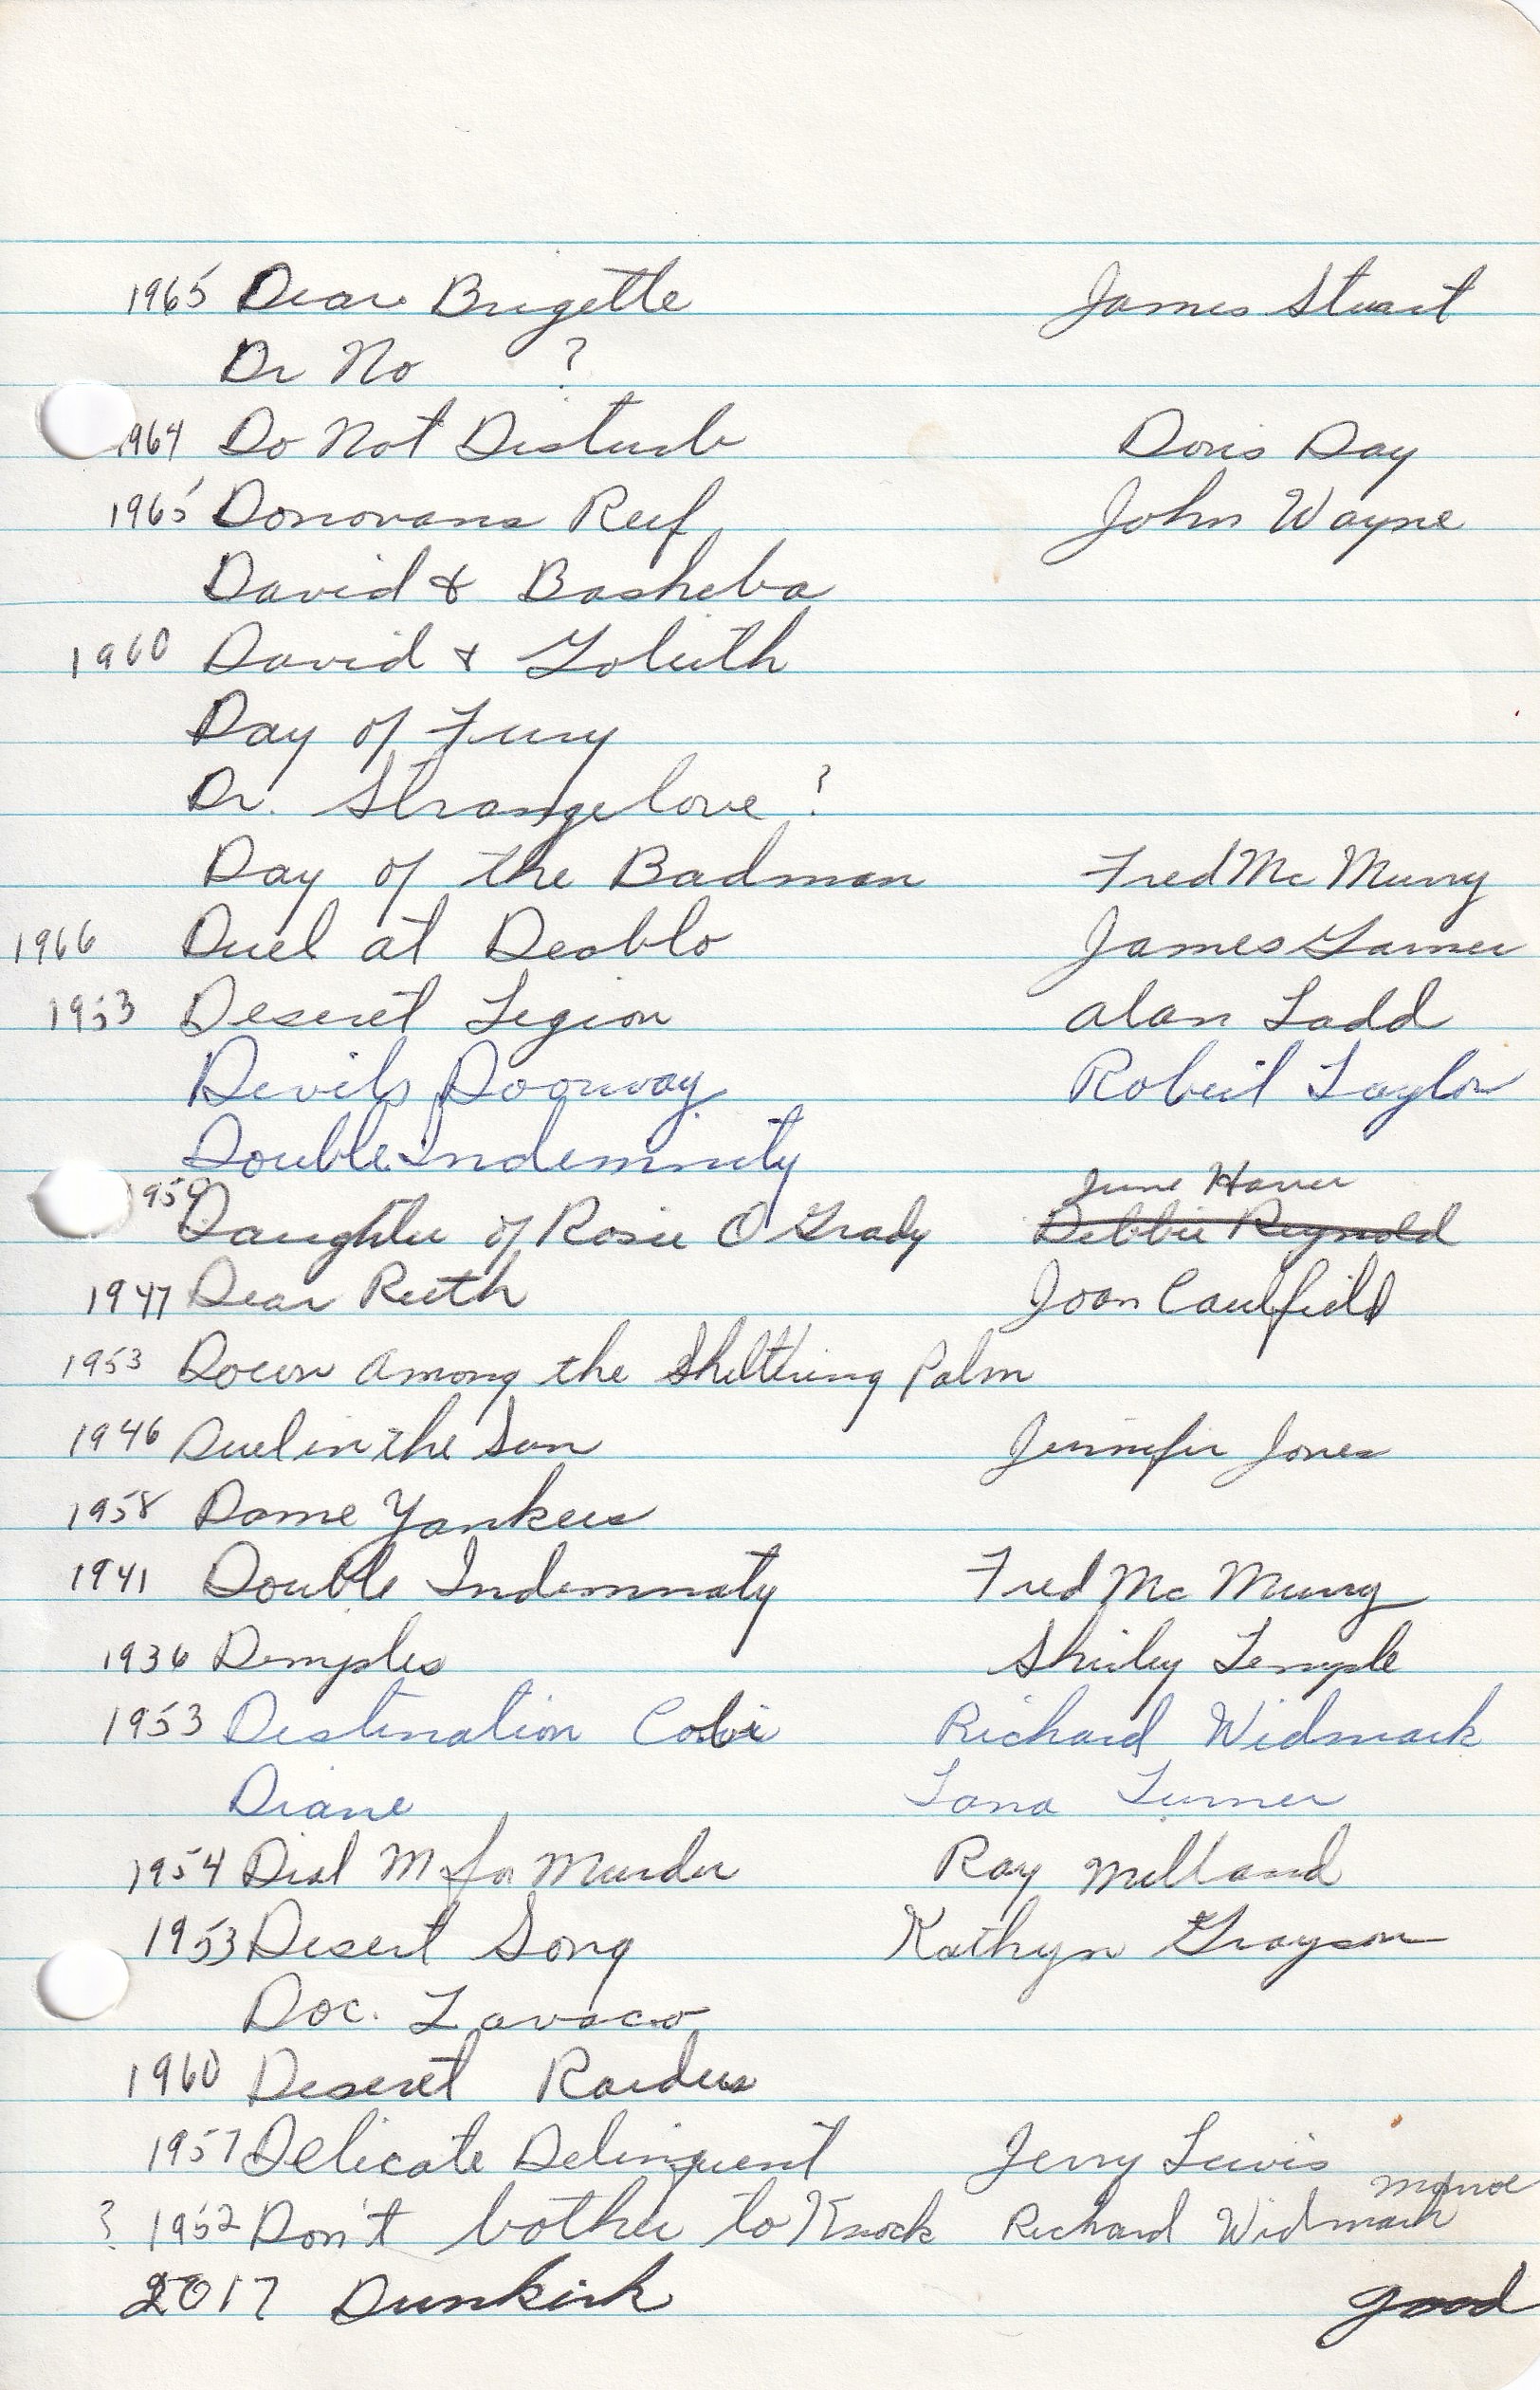 1965 Dear Brigette James Stuart
Dr No ?
1964 Do Not Disturb Doris Day
1965 Donovans Reef John Wayne
David & Basheba
1960 David & Goliith
Day of Fury
Dr. Strangelove ?
Day of the Badman Fred Mc Murry
1966 Duel at Deablo James Garner
1953 Deseret Legion Alan Ladd
Devils Doorway Robert Taylor
Double Indemnity
June Haver
1950 Daughter of Rosie O Grady Debbie Reynold
1947 Dear Ruth Joan Caulfield
1953 Down Among the Sheltering Palm
1946 Duel in the Sun Jennifer Jones
1958 Dame Yankees
1941 Double Indemnaty Fred Mc Murry
1936 Demples Shirley Temple
1953 Destination Cobi Richard Widmark
Diane Lana Turner
1954 Dial M for Murder Ray Milland
1953 Desert Song Kathyn Grayson
Doc. Zavaco
1960 Deseret Raiders
1957 Delicate Delinquent Jerry Lewis
Monroe
? 1952 Don't bother to Knock Richard Widmark
2017 Dunkirk good